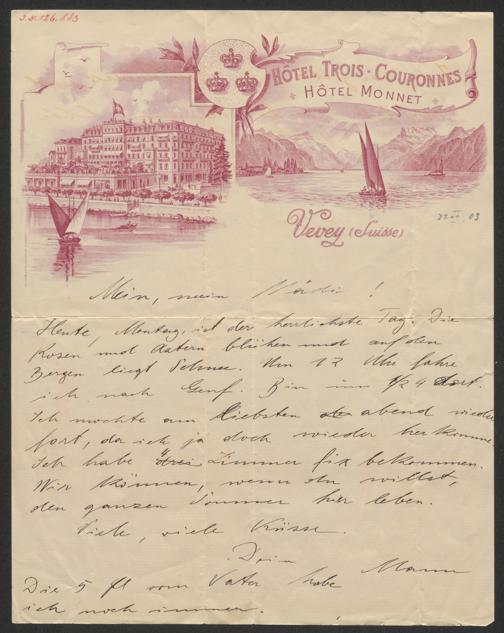 J.N. 126.883
HÔTEL TROIS-COURONNES
HÔTEL MONNET
Vevey (Suisse)
Mein, mein Mädi!
Heute, Montag, ist der herrlichste Tag. Die
Rosen und Astern blühen und auf den
Bergen liegt Schnee. Um 12 Uhr fahre
ich nach Genf. Bin um 1/2 4 dort.
Ich möchte am liebsten abend wieder
fort, da ich ja doch wieder herkomme.
Ich habe drei Zimmer fix bekommen.
Wir können, wenn du willst,
den ganzen Sommer hier leben.
Viele, viele Küsse.
Dein
Mann
Die 5 fl vom Vater habe
ich noch immer.